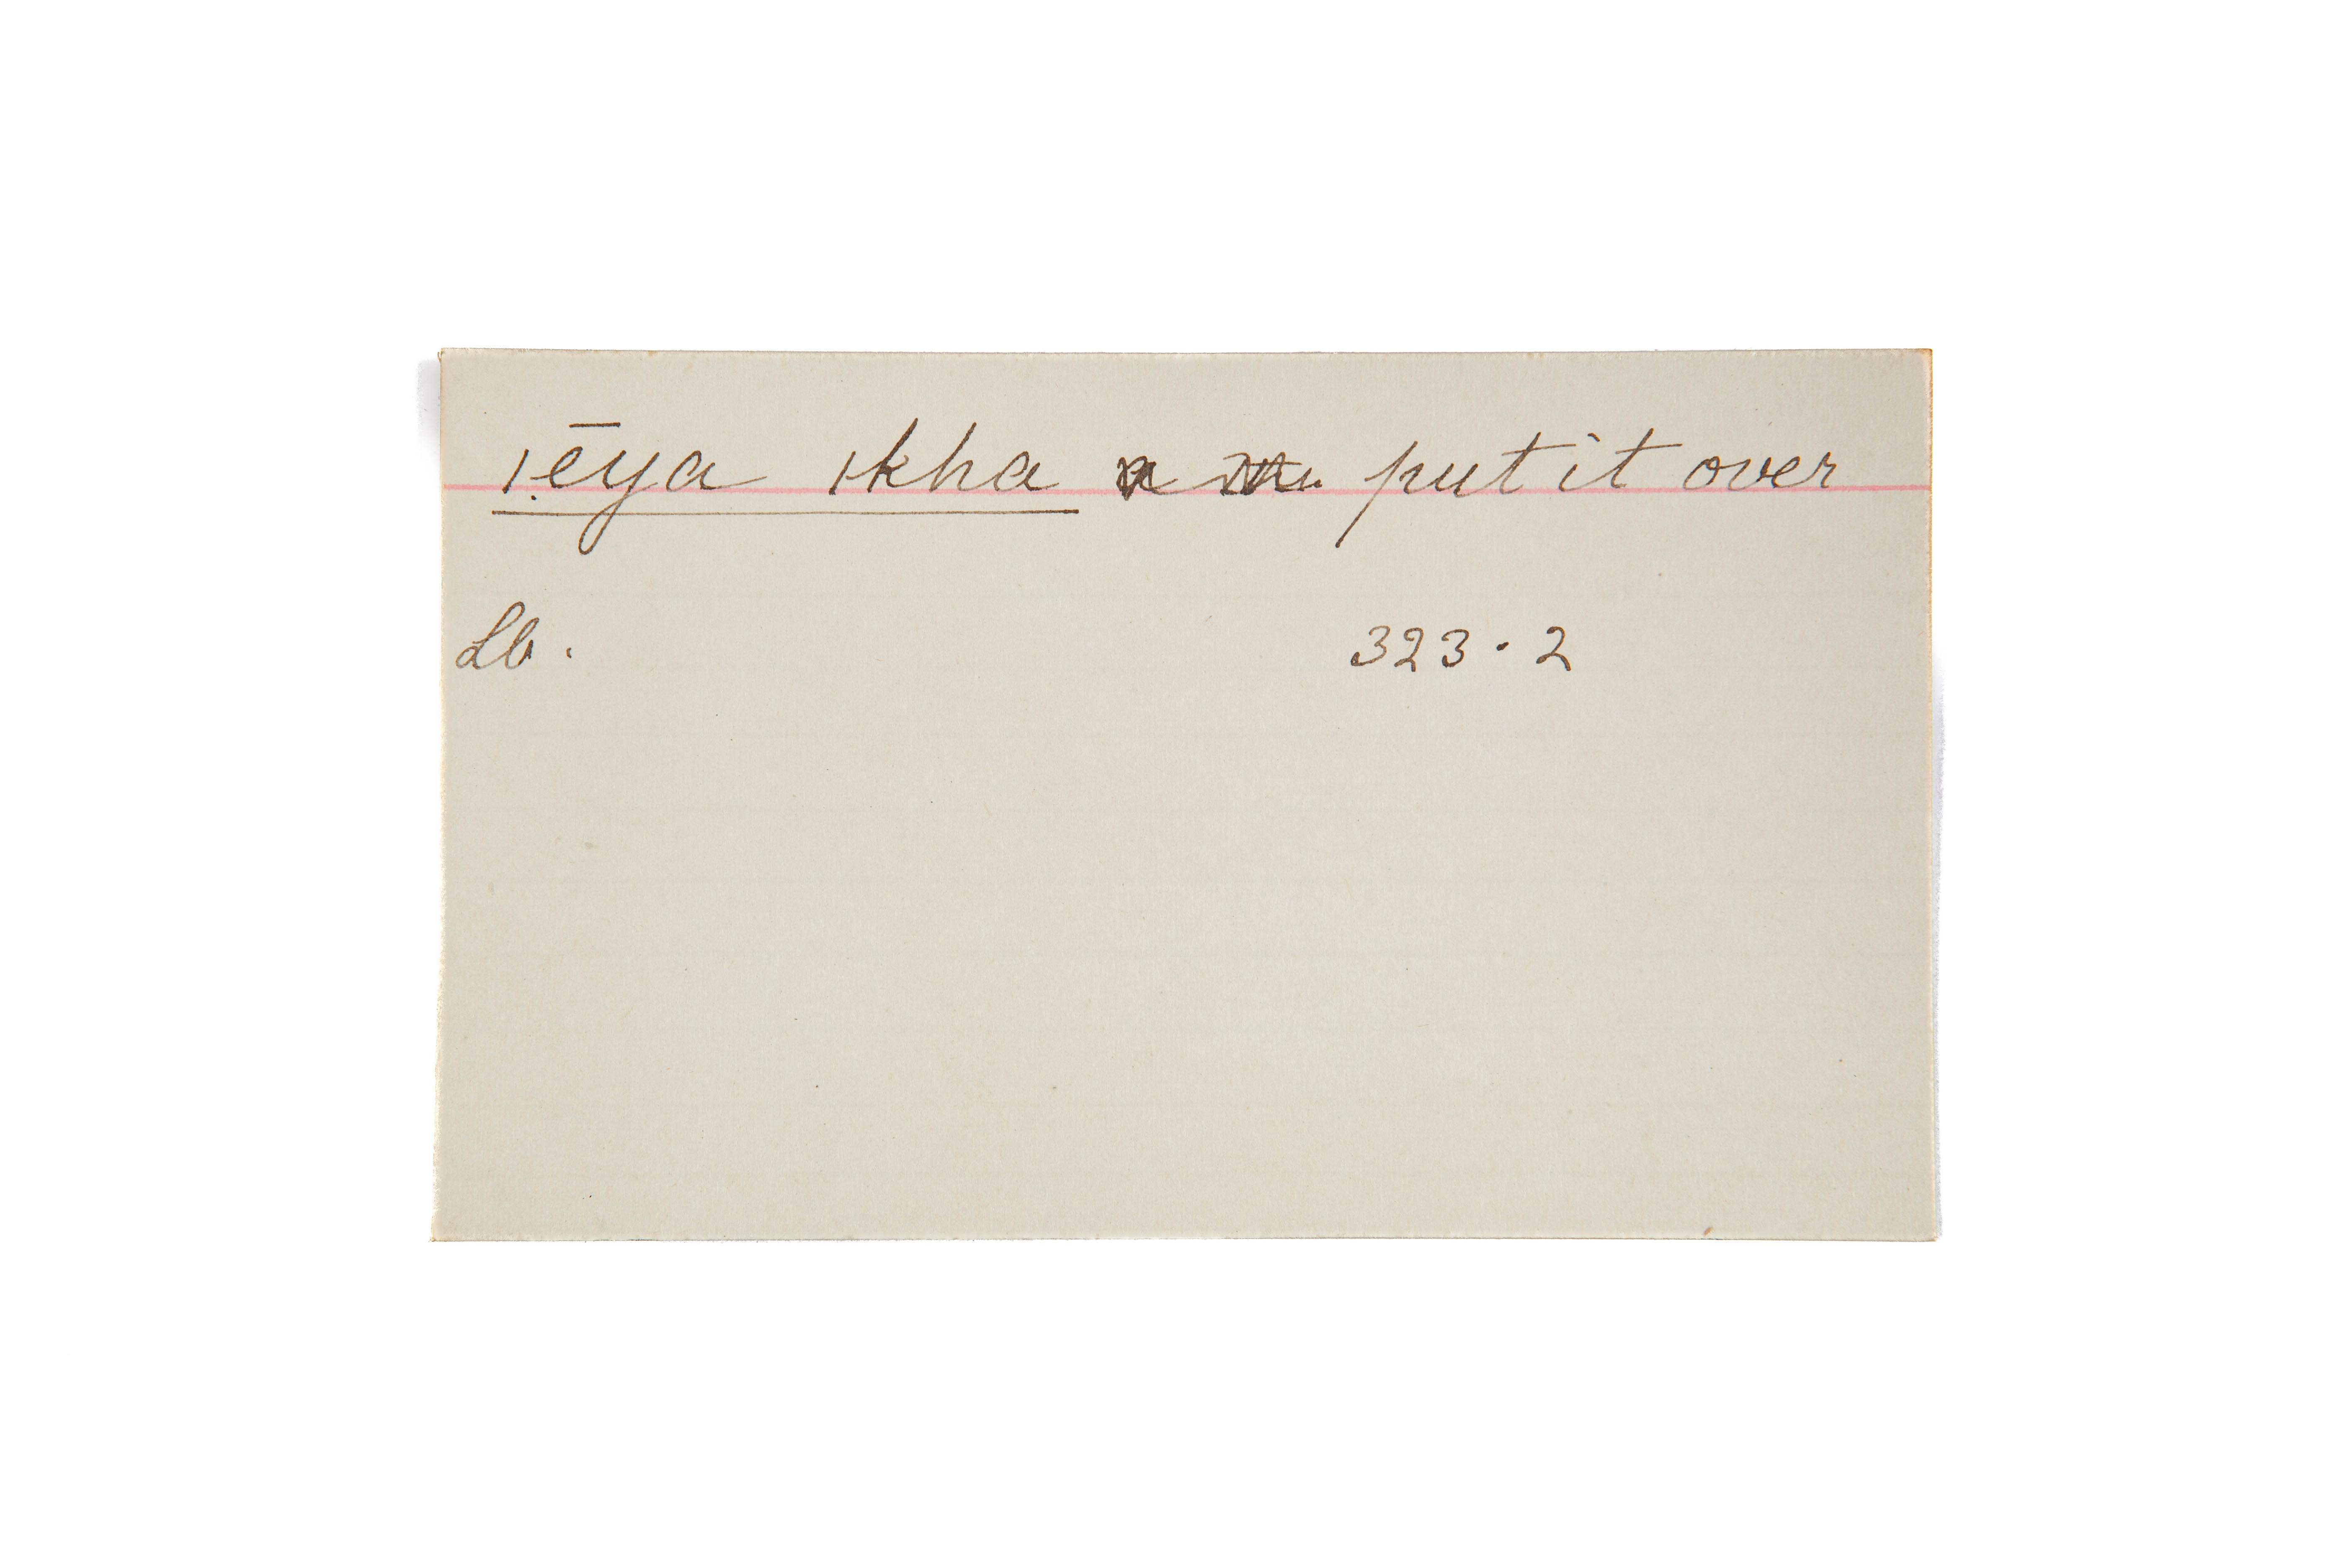 ı.ēya ıkha put it over
Lb. 323·2